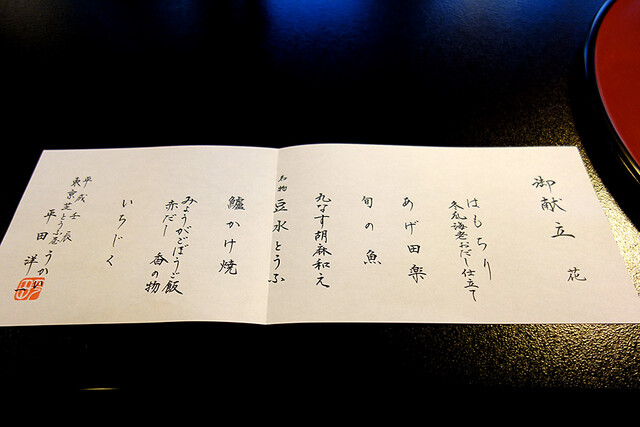 御献立
花
はもちり
冬瓜海老おだし仕立て
あげ田楽
旬の魚
丸なす胡麻和え
名物 豆水とうふ
鱸かけ焼
みょうがごぼうご飯
赤だし 香の物
いちじく
平成壬辰
東京芝とうふ屋うかい
平田洋一